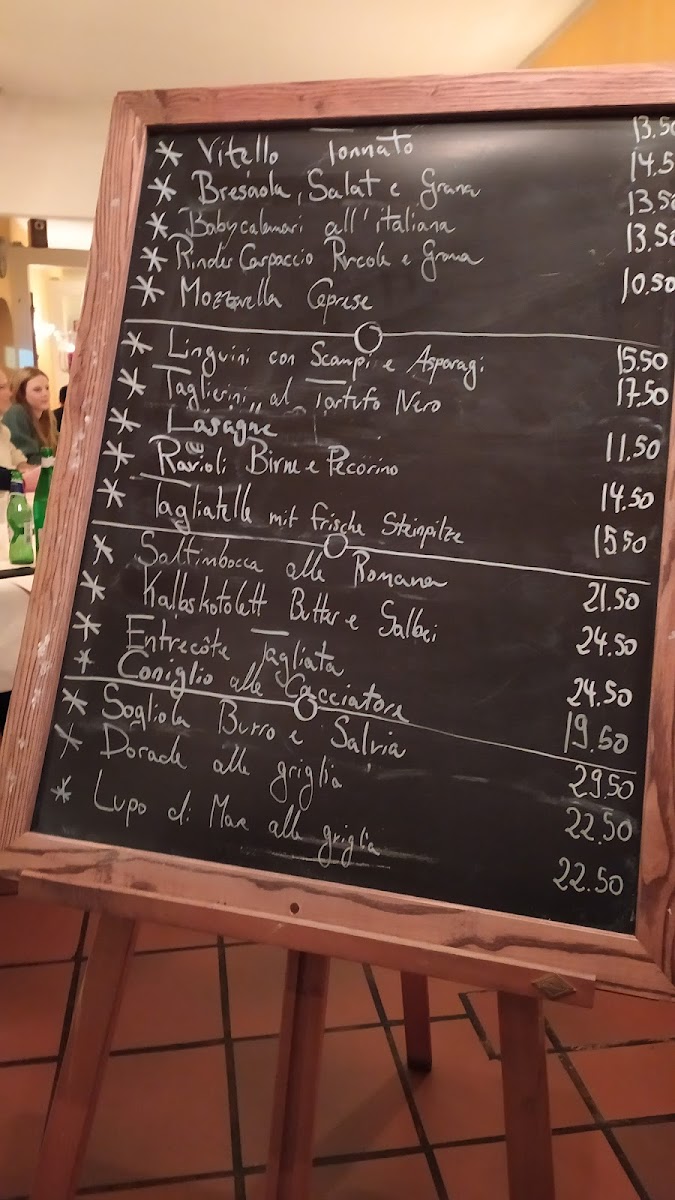 * Vitello Tonnato 13.50
* Bresaola, Salat e Grana 14.5
* Babycalamari all'italiana 13.50
* Rinder Carpaccio Rucola e Grana 13.50
* Mozzarella Caprese 10.50
* Linguini con Scampi e Asparagi 15.50
* Taglierini al Tartufo Nero 17.50
* Lasagne 11.50
* Ravioli Birne e Pecorino 14.50
* Tagliatelle mit frische Steinpilze 15.50
* Saltimbocca alla Romana 21.50
* Kalbskotolett Butter e Salbei 24.50
* Entrecôte Tagliata 24.50
* Coniglio alla Cacciatora 19.50
* Sogliola Burro e Salvia 29.50
* Dorade alla griglia 22.50
* Lupo di Mare alla griglia 22.50